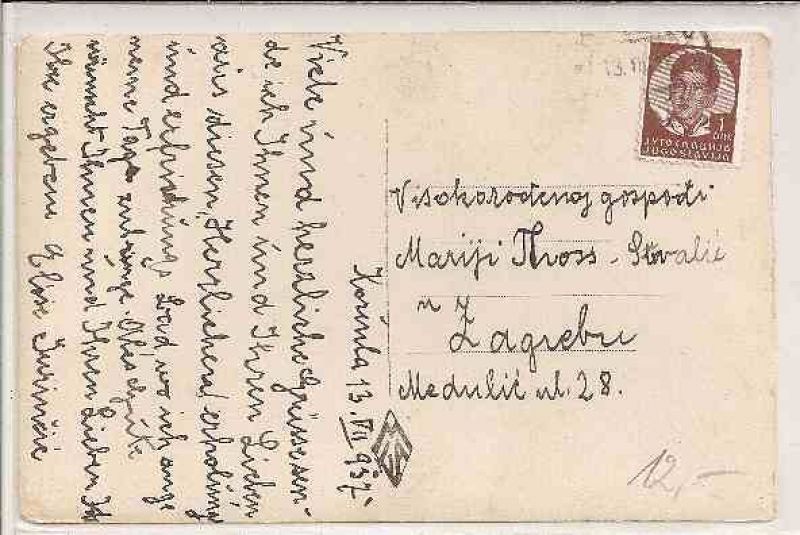 Korčula 13. VII 937.
Viele und herzliche Grüsse sen-
de ich Ihnen und Ihren Lieben
aus diesen, Herrlichen, erholung
und erfindungs Bad wo ich ange
neme Tage zubringe. Alles Gute
wünscht Ihnen und Ihren Lieben Ih
Ihre ergebene Elise Jurinčić
13. VII
1 DIN
ЈУГОСЛАВИЈА
JUGOSLAVIJA
Visokorođenoj gospođi
Mariji Tross - Stvalić
u Zagrebu
Medulić ul. 28.
12,-